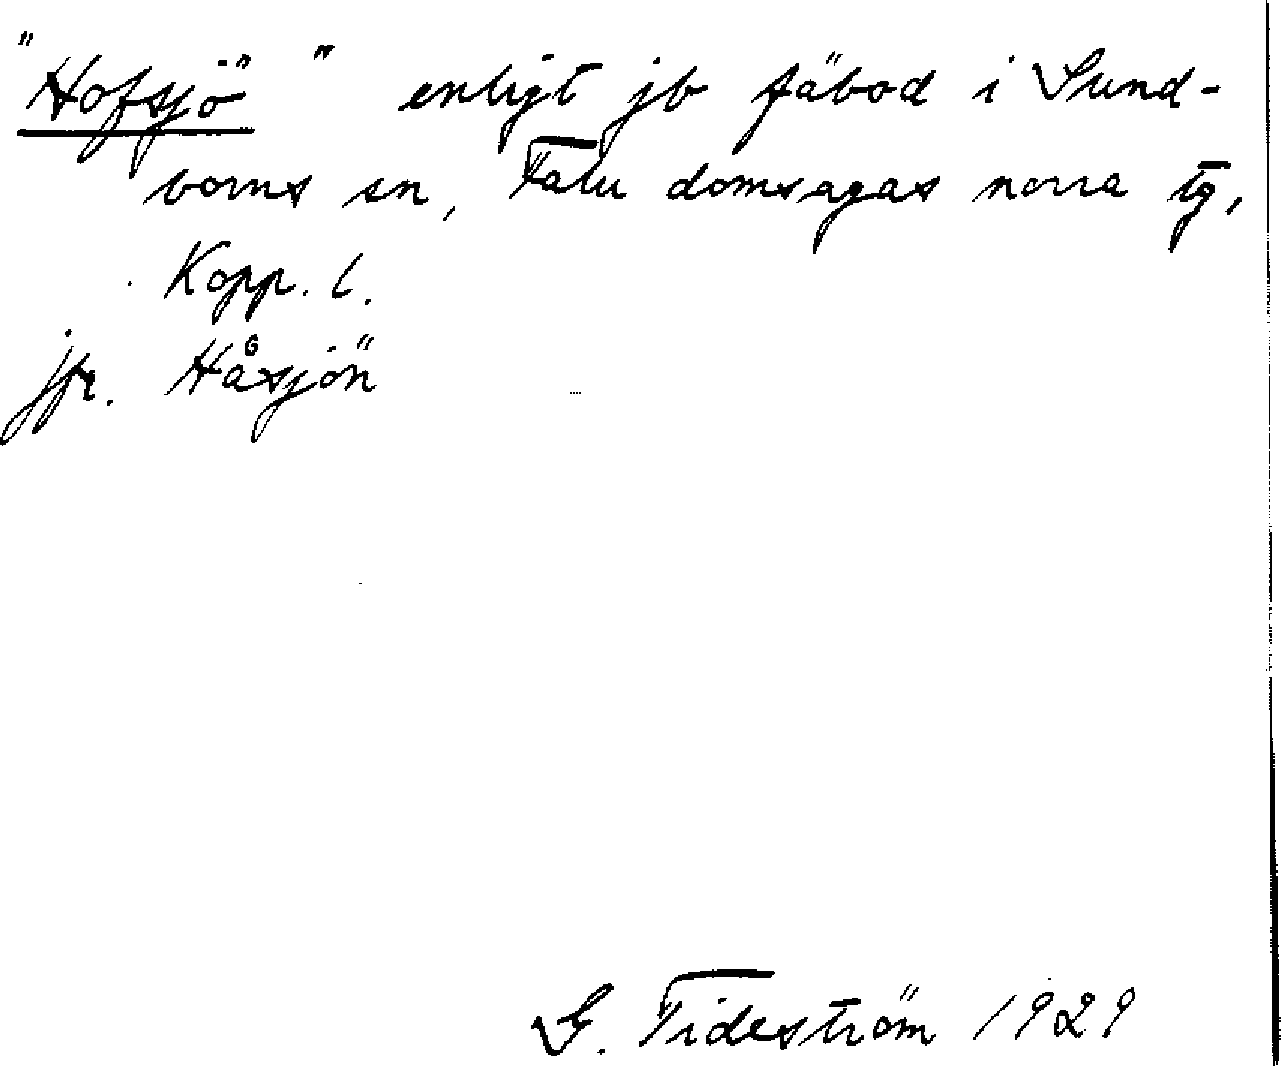 "Hofsjö" enligt jb fäbod i Sund-
borns sn, Falu domsagas norra tg,
Kopp. l.
jfr. Håsjön
G. Tideström 1929